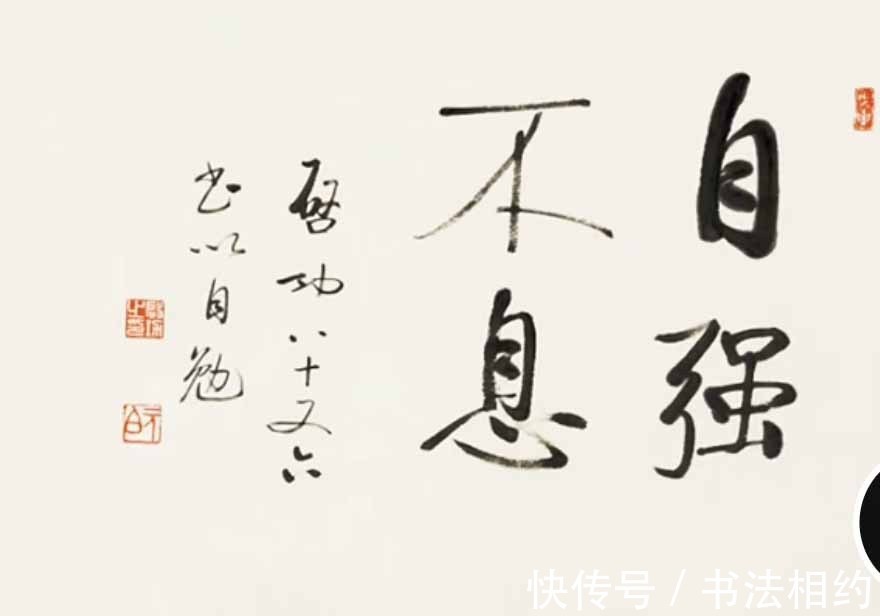 自强
不息
启功八十又六
书以自勉
快传号 / 书法相约